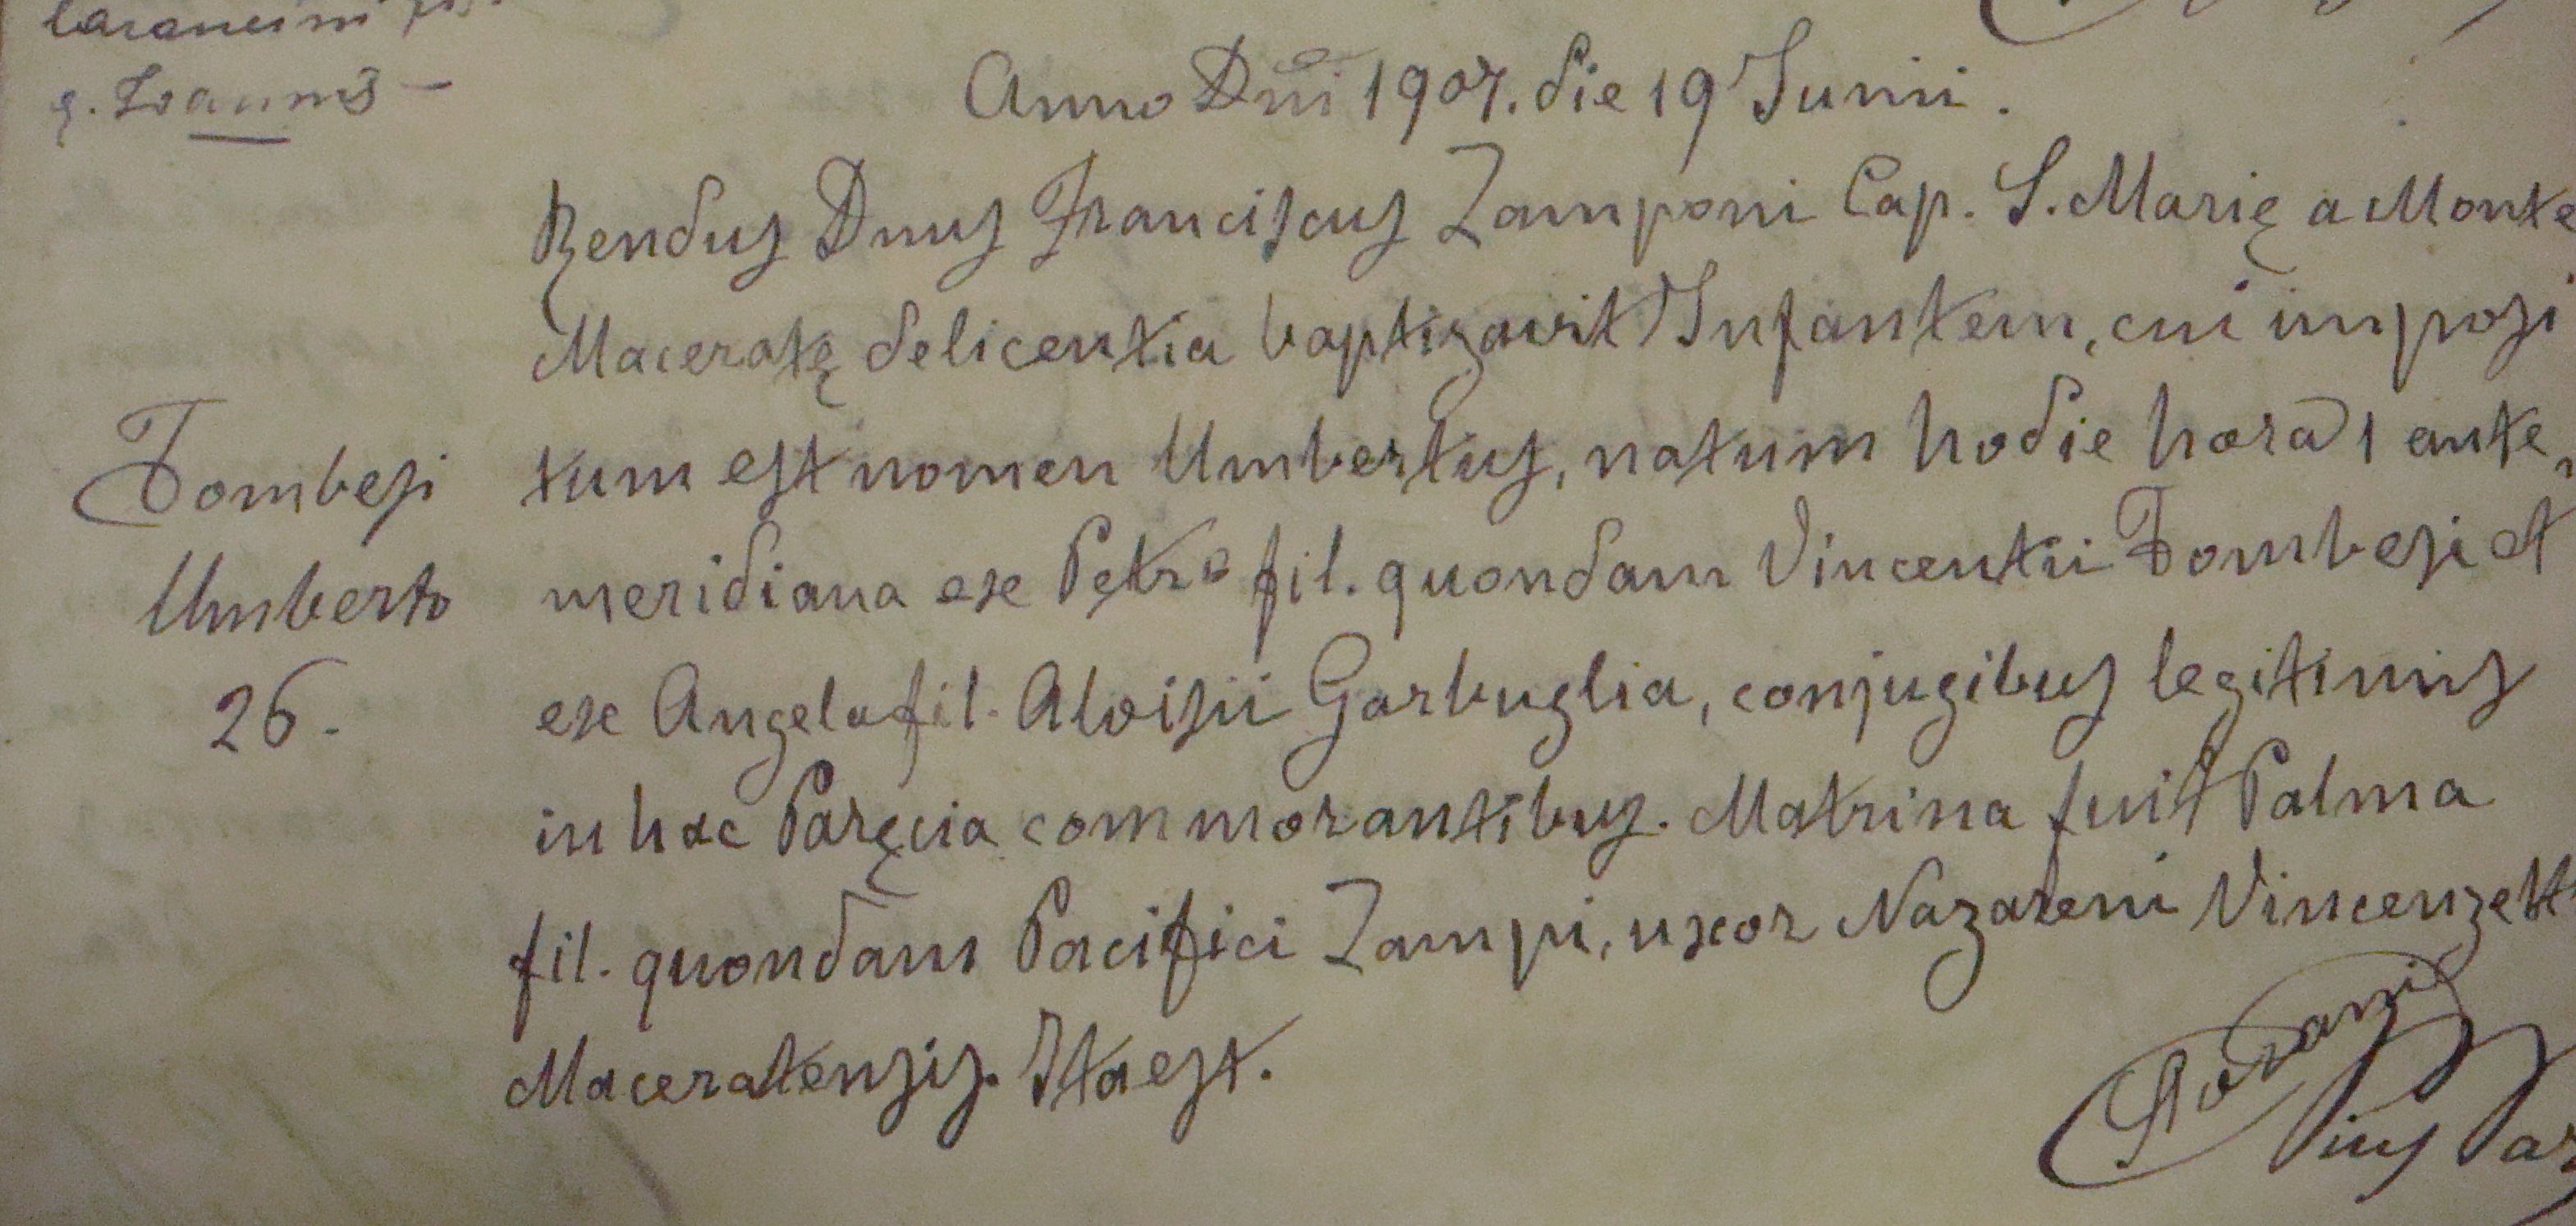 q. Ioannis -
Anno Dñi 1907. die 19 Junii.
Rendus Dnus Franciscus Zamponi Cap. S. Marię a Monte
Maceratę delicentia baptizavit Infantem, cui imposi
Tombesi tum est nomen Umbertus, natum hodie hora 1 ante
Umberto meridiana ex Petro fil. quondam Vincentii Tombesi et
26. ex Angela fil. Aloisii Garbuglia, conjugibus legitimis
in hac Paręcia commorantibus. Matrina fuit Palma
fil. quondam Pacifici Zampi, uxor Nazareni Vincenzetti
Maceratensis. Ita est.
Pius Par